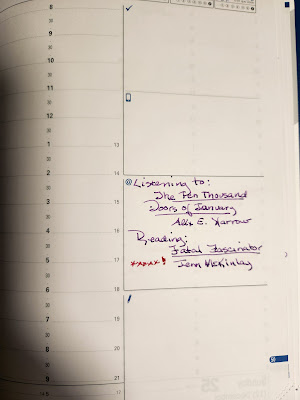 8
9
10
11
12
1 13
2 14
3 15
4 16
5 17
6 18
7 19
8 20
9 21
@ Listening to:
The Ten Thousand
Doors of January
Alix E. Harrow
Reading:
Fatal Fascinator
***** ! Jenn McKinlay